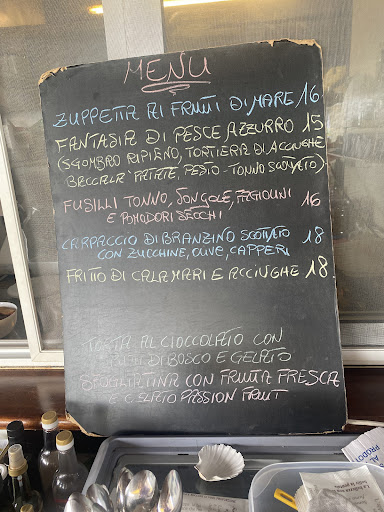 MENU
ZUPPETTA AI FRUTTI DI MARE 16
FANTASIA DI PESCE AZZURRO 15
(SGOMBRO RIPIENO, TORTIERA DI ACCIUGHE
BACCALA' PATATE, PESTO - TONNO SCOTTATO)
FUSILLI TONNO, VONGOLE, FAGIOLINI 16
E POMODORI SECCHI
CARPACCIO DI BRANZINO SCOTTATO 18
CON ZUCCHINE, OLIVE, CAPPERI
FRITTO DI CALAMARI E ACCIUGHE 18
TORTA AL CIOCCOLATO CON
FRUTTI DI BOSCO E GELATO
SFOGLIATINA CON FRUTTA FRESCA
E GELATO PASSION FRUIT
AL
PRODOT